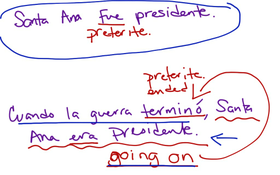 Santa Ana fue presidente.
preterite.
preterite.
ended
Cuando la guerra terminó, Santa
Ana era Presidente.
going on